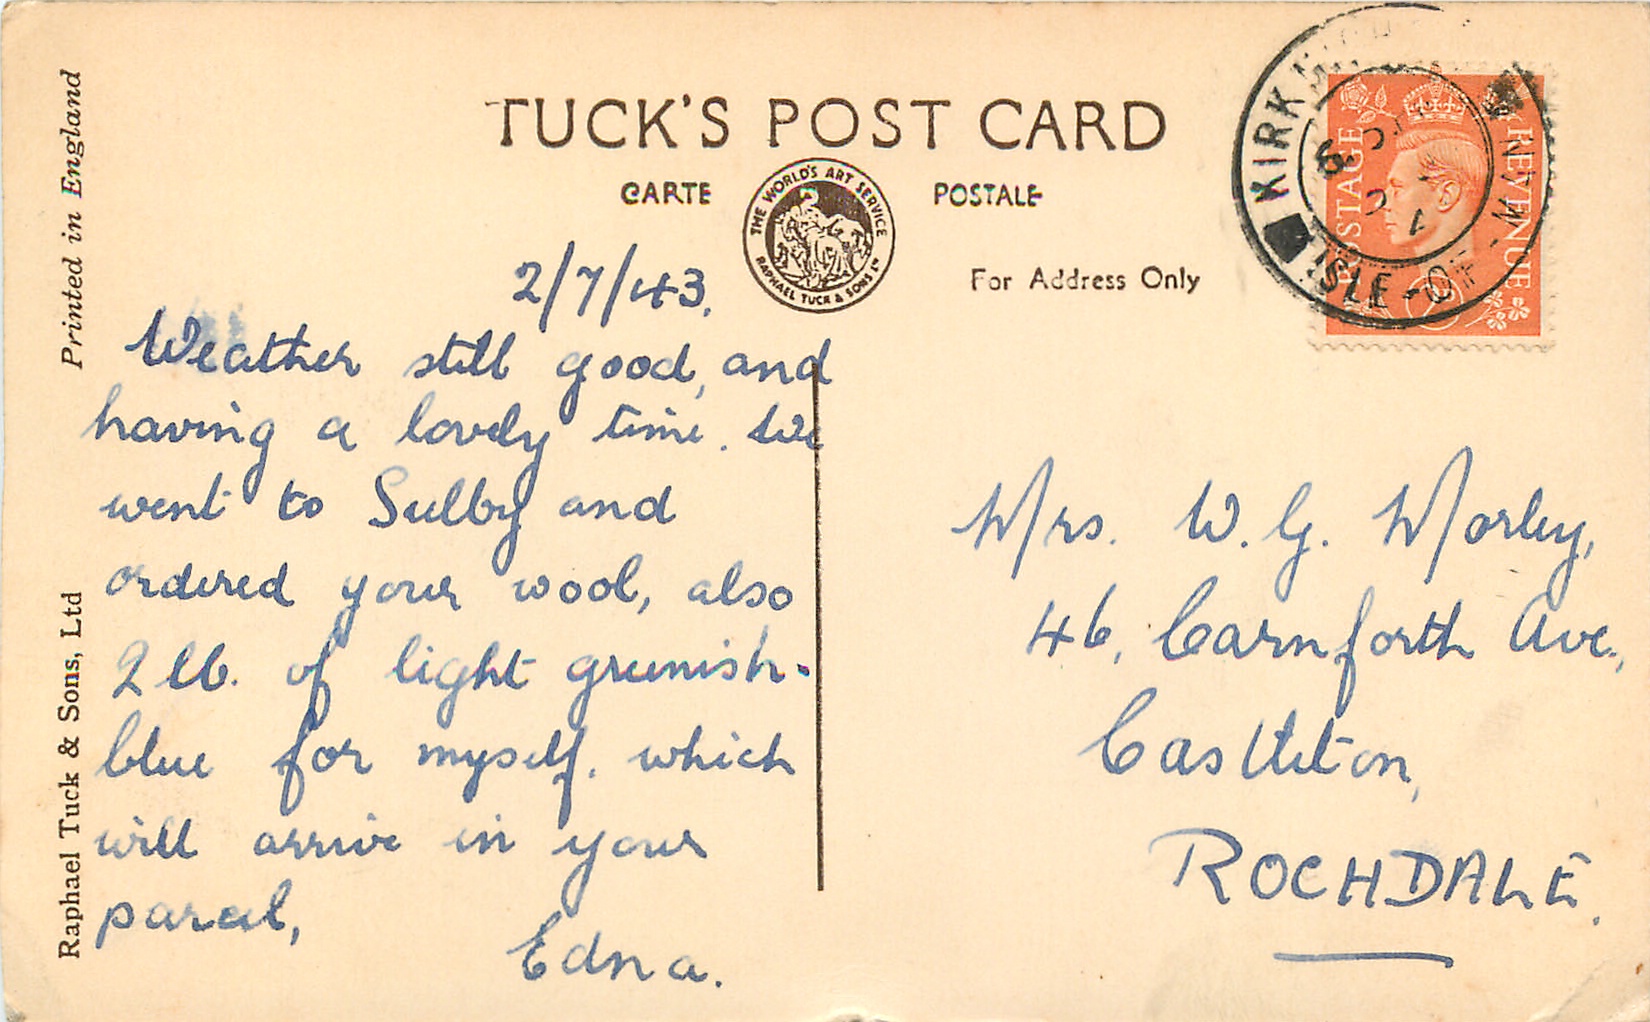 TUCK'S POST CARD
CARTE POSTALE
THE WORLD'S ART SERVICE
RAPHAEL TUCK & SONS LTD
For Address Only
Printed in England
Raphael Tuck & Sons, Ltd
KIRK
ISLE-OF-MAN
POSTAGE
REVENUE
2/7/43.
Weather still good, and
having a lovely time. We
went to Sulby and
ordered your wool, also
2 lb. of light greenish-
blue for myself. which
will arrive in your
parcel,
Edna.
Mrs. W. G. Morley,
46, Carnforth Ave.,
Castleton,
ROCHDALE.